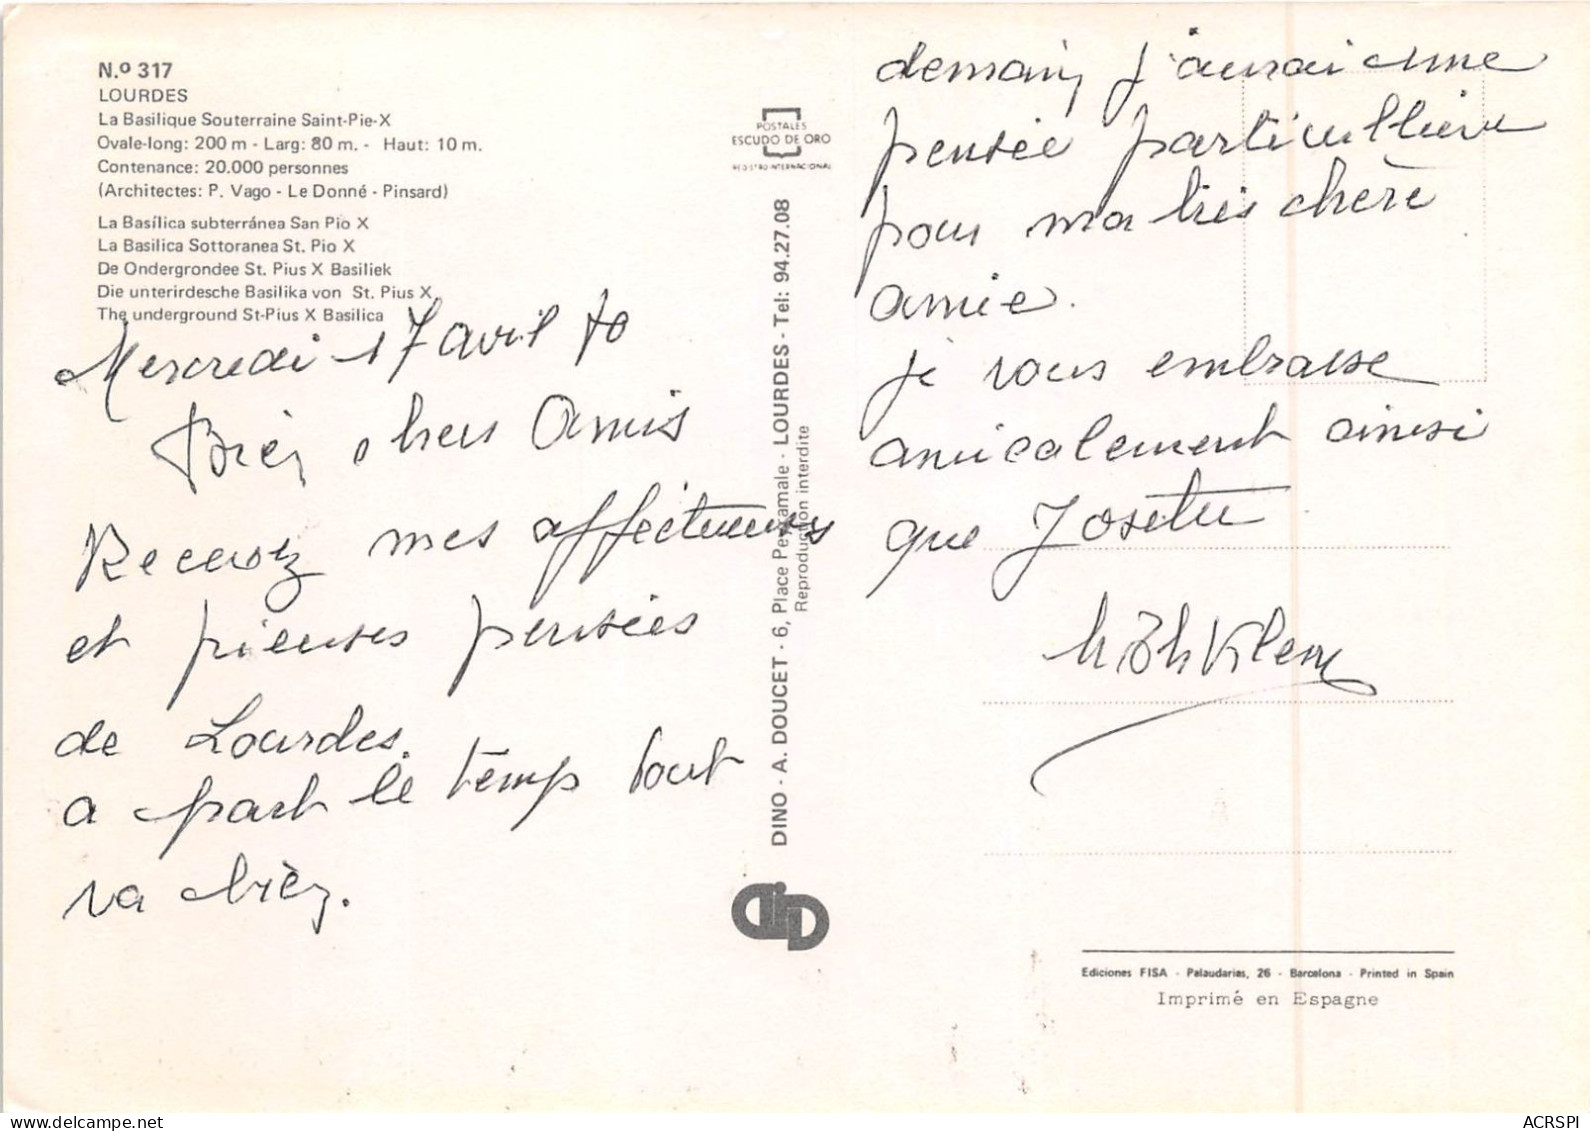 N.º 317
LOURDES
La Basilique Souterraine Saint-Pie-X
Ovale-long: 200 m - Larg: 80 m. - Haut: 10 m.
Contenance: 20.000 personnes
(Architectes: P. Vago - Le Donné - Pinsard)
La Basílica subterránea San Pio X
La Basilica Sottoranea St. Pio X
De Ondergrondee St. Pius X Basiliek
Die unterirdesche Basilika von St. Pius X
The underground St-Pius X Basilica
Mercredi 17 avril 70
Bien chers Amis
Recevez mes affectueuses
et pieuses pensées
de Lourdes.
a part le temps tout
va bien.
POSTALES
ESCUDO DE ORO
REGISTRO INTERNACIONAL
DINO - A. DOUCET - 6, Place Peyramale - LOURDES - Tel: 94.27.08
Reproduction interdite
demain j'aurai une
pensée particullière
pour ma très chère
amie.
je vous embrasse
amicalement ainsi
que Josette
Ediciones FISA - Palaudarias, 26 - Barcelona - Printed in Spain
Imprimé en Espagne
ACRSPI